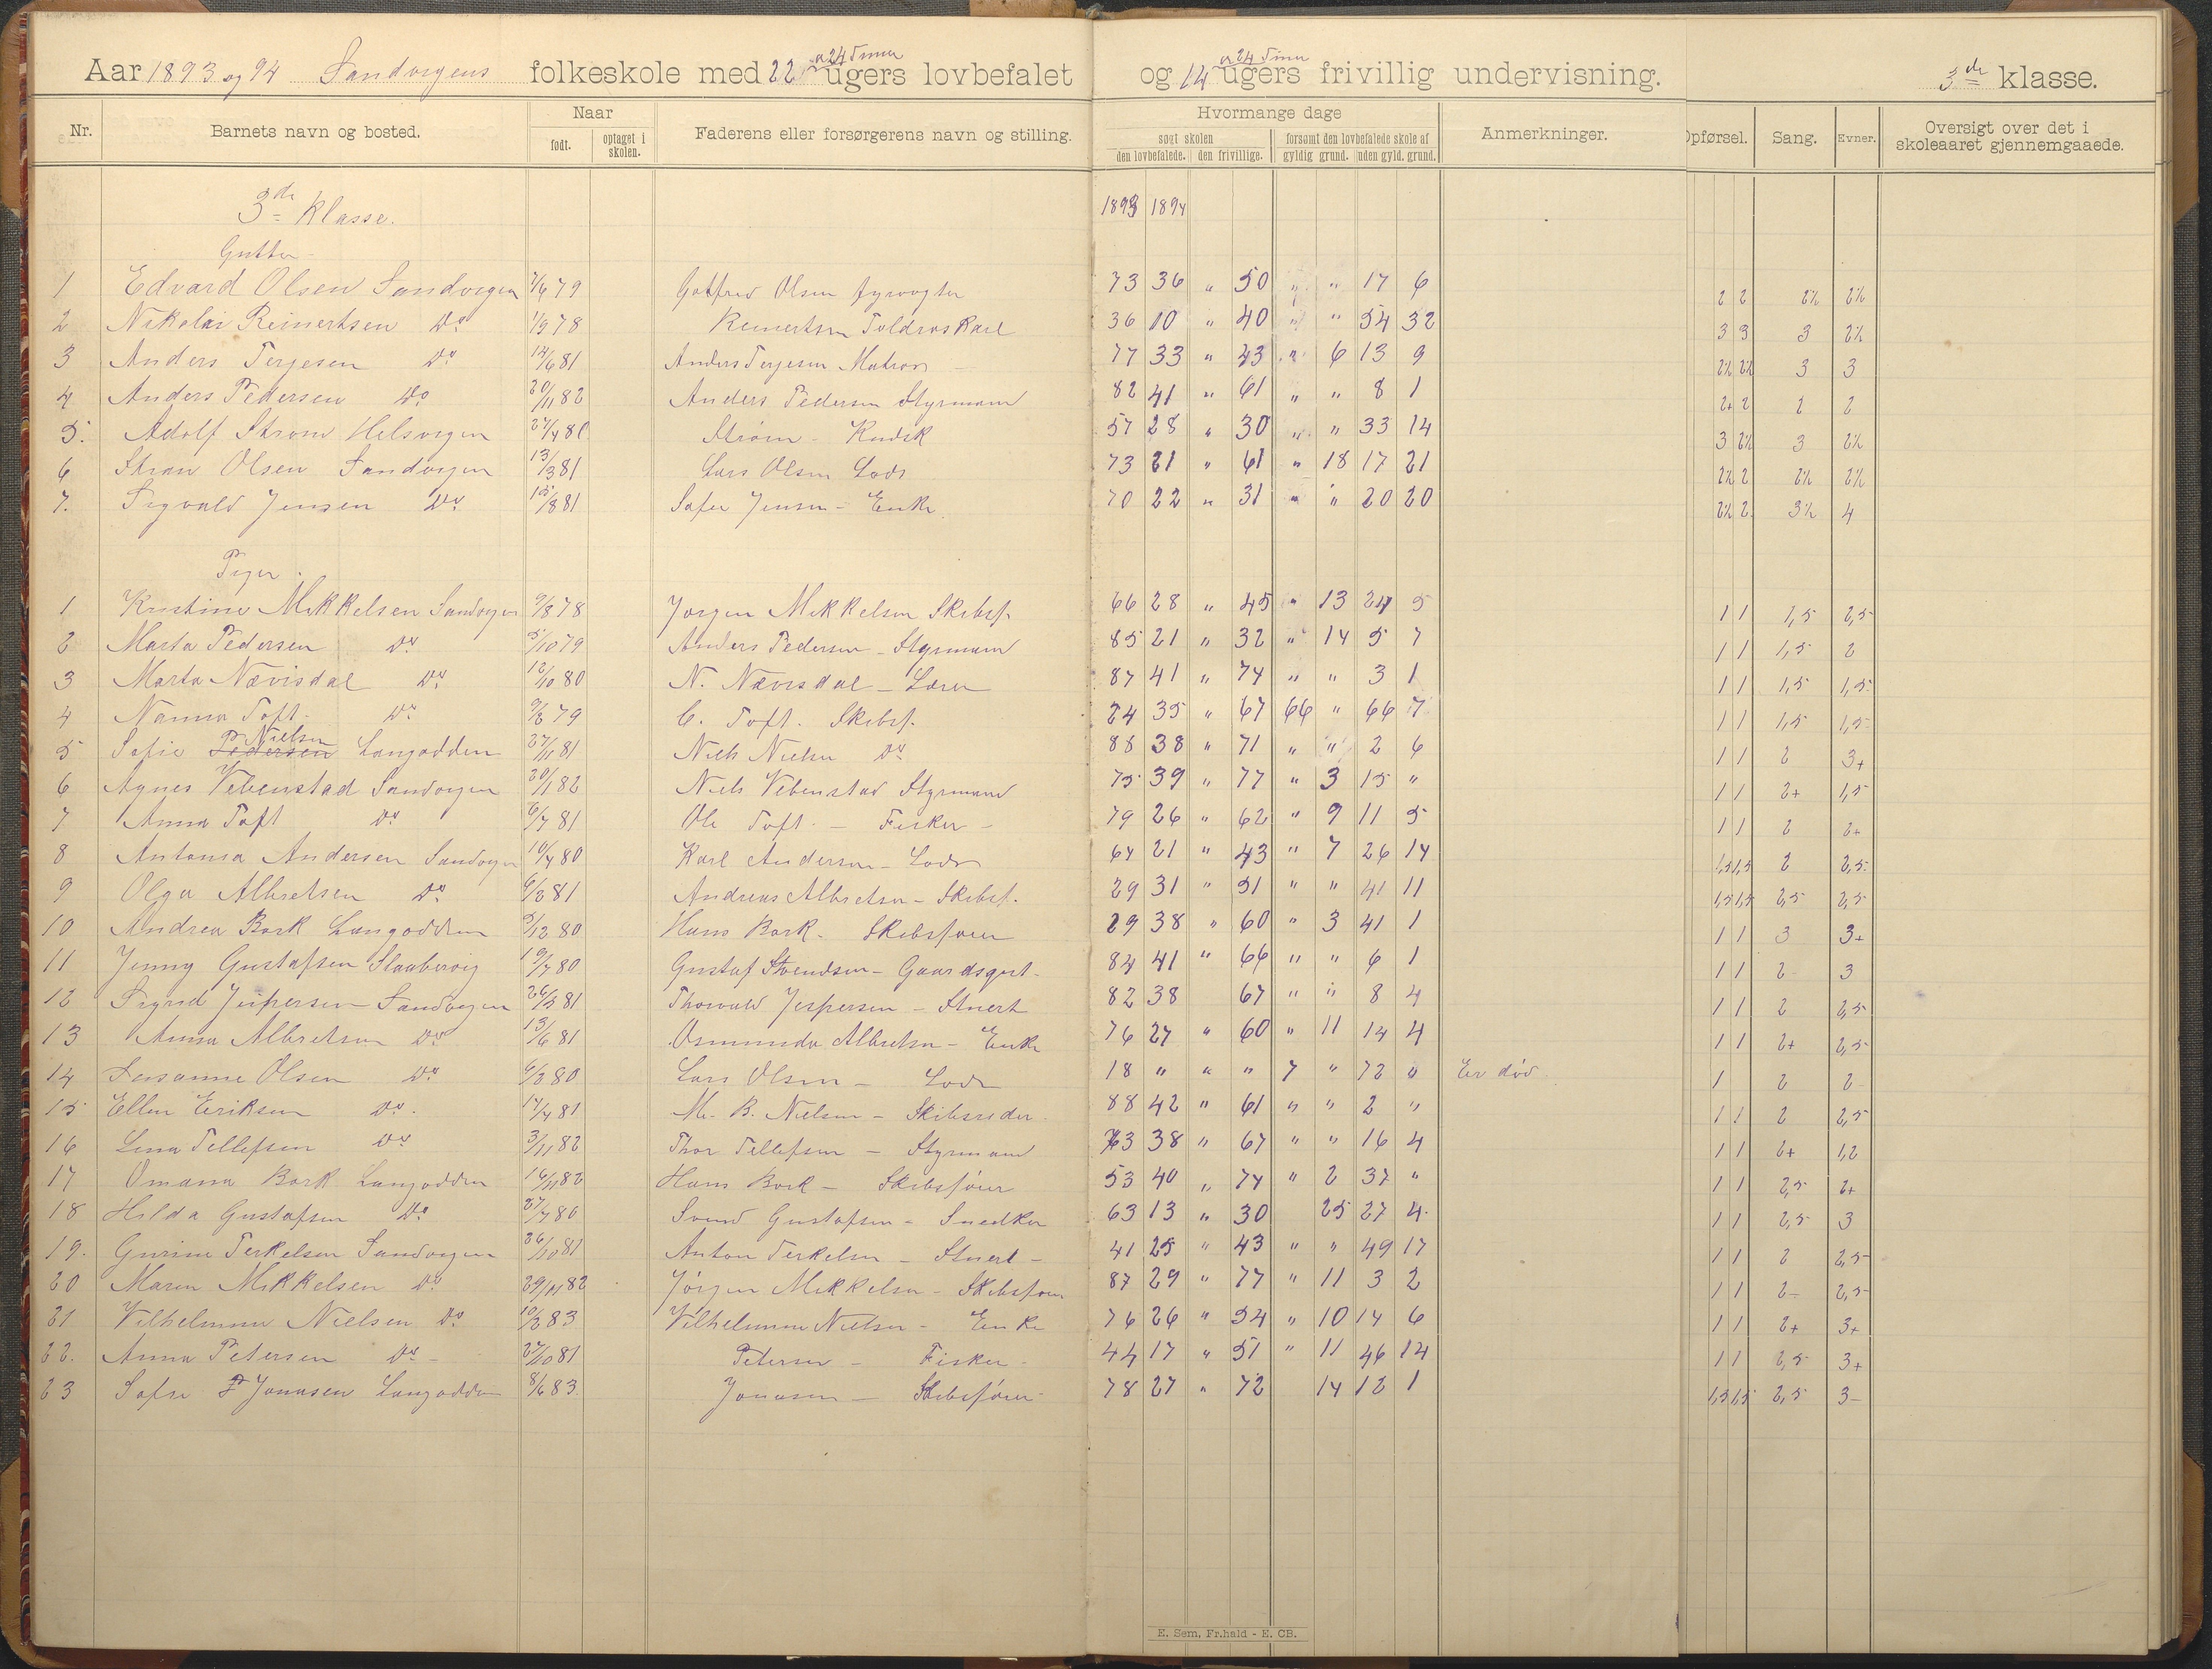 Aar 1893 og 94 Sandvigens folkeskole med 22 a 24 Timer ugers lovbefalet og 14 a 24 Timer ugers frivillig undervisning. 3de klasse.
Nr. Barnets navn og bosted. Naar født. optaget i skolen. Faderens eller forsørgerens navn og stilling. Hvormange dage søgt skolen den lovbefalede. den frivillige. forsømt den lovbefalede skole af gyldig grund. uden gyld. grund. Anmerkninger. Opførsel. Sang. Evner. Oversigt over det i skoleaaret gjennemgaaede.
3de klasse. 1893 1894
Gutter
1 Edvard Olsen Sandvigen 7/6 79 Gotfred Olsen fyrvogter 73 36 " 50 " " 17 6 2 2 2½ 2½
2 Nikolai Reinertsen Do 1/9 78 Reinertsen Toldroskarl 36 10 " 40 " " 54 32 3 3 3 2½
3 Anders Terjesen Do 14/6 81 Anders Terjesen Matros 77 33 " 43 " 6 13 9 2½ 2½ 3 3
4 Anders Pedersen Do 20/11 82 Anders Pedersen Styrmand 82 41 " 61 " " 8 1 2+ 2 2 2
5. Adolf Strøm Helsvigen 27/4 80 Strøm - Kudsk 57 28 " 30 " " 33 14 3 2½ 3 2½
6 Olsen Sandvigen 13/3 81 Lars Olsen Lods 73 21 " 61 " 18 17 21 2½ 2 2½ 2½
7. Sigvald Jensen Do 15/8 81 Jensen - Enke 70 22 " 31 " " 20 20 2½ 2 3½ 4
Piger.
1 Kristine Mikkelsen Sandvigen 9/8 78 Jørgen Mikkelsen Skibsf. 66 28 " 45 " 13 24 5 1 1 1,5 2,5
2 Marta Pedersen Do 5/10 79 Anders Pedersen - Styrmand 85 21 " 32 " 14 5 7 1 1 1,5 2
3 Marta Nævisdal Do 12/10 80 N. Nævisdal - Lærer 87 41 " 74 " " 3 1 1 1 1,5 1,5
4 Nanna Toft. Do 79 C. Toft. Skibsf. 24 35 " 67 66 " 66 7 1 1 1,5 1,5
5 Sofie Pedersen Nielsen Langodden 27/11 81 Niels Nielsen Do 88 38 " 71 " " 2 6 1 1 2 3+
6 Agnes Vebenstad Sandvigen 20/1 82 Niels Vebenstad Styrmand 75 39 " 77 " 3 15 " 1 1 2+ 1,5
7 Anna Toft Do 6/7 81 Ole Toft - Fisker - 79 26 " 62 " 9 11 5 1 1 2 2+
8 Antonia Andersen Sandvigen 10/4 80 Karl Andersen - Lods 64 21 " 43 " 7 26 14 1,5 1,5 2 2,5
9 Olga Albretsen Do 6/3 81 Andreas Albretsen - Skibsf. 29 31 " 51 " " 41 11 1,5 1,5 2,5 2,5
10 Andrea Bork Langodden 5/12 80 Hans Bork. Skibsfører 29 38 " 60 " 3 41 1 1 1 3 3+
11 Jenny Gustafsen Slaabervig 19/7 80 Gustaf Svendsen - Gaardsgut - 84 41 " 66 " " 6 1 1 1 2 3
12 Sigrid Jespersen Sandvigen 26/3 81 Thorvald Jespersen - Stuert 82 38 67 " " 8 4 1 1 2 2,5
13 Anna Albretsen Do 13/6 81 Osmunda Albretsen - Enke 76 27 " 60 " 11 14 4 1 1 2+ 2,5
14 Susanne Olsen Do 6/3 80 Lars Olsen - Lods 18 " " " 7 " 72 " Er død 1 2 2
15 Ellen Eriksen Do. 14/4 81 M. B. Nielsen - Skibsreder 88 42 " 61 " " 2 " 1 1 2 2,5
16 Lina Tellefsen Do 3/11 82 Thor Tellefsen - Styrmand 63 38 " 67 " " 16 4 1 1 2+ 1,2
17 Omana Bork Langodden 16/11 82 Hans Bork - Skibsfører 53 40 " 74 " 2 37 " 1 1 2,5 2+
18 Hilda Gustafsen Do 27/7 80 Svend Gustafsen - Snedker 63 13 " 30 25 27 4 1 1 2,5 3
19. Gurine Terkelsen Sandvigen 26/10 81 Anton Terkelsen - Stuert - 41 25 " 43 " " 49 17 1 1 2 2,5
20 Maren Mikkelsen Do 29/11 82 Jörgen Mikkelsen - Skibsfører 87 29 " 77 " 11 3 2 1 1 2- 2,5
21 Vilhelmine Nielsen Do 10/3 83 Vilhelmine Nielsen - Enke 76 26 " 54 " 10 14 6 1 1 2+ 3+
22. Anna Petersen Do - 27/10 81 Petersen - Fisker - 44 17 " 51 " 11 46 14 1 1 2,5 3+
23 Sofie Jonasen Langodden 8/6 83. Jonasen - Skibsfører - 78 27 " 72 14 12 1 1,5 1,5 2,5 3-
E. Sem, Fr.hald - E. CB.